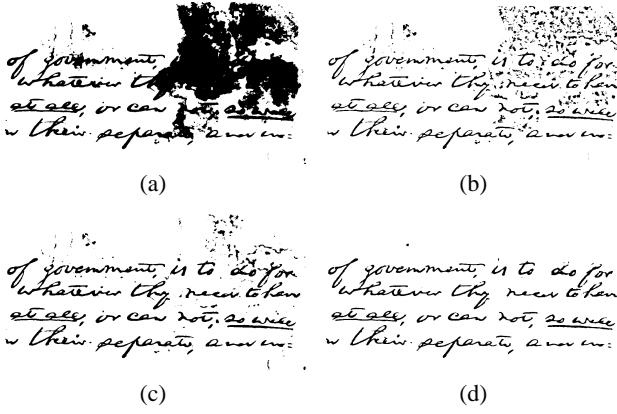 of government,
whatever
at all, or can not, so well
their separate, and in=
(a)
of government, is to do for
whatever they need to have
at all, or can not, so well
their separate, and in=
(b)
of government, is to do for
whatever they need to have
at all, or can not, so well
their separate, and in=
(c)
of government, is to do for
whatever they need to have
at all, or can not, so well
their separate, and in=
(d)